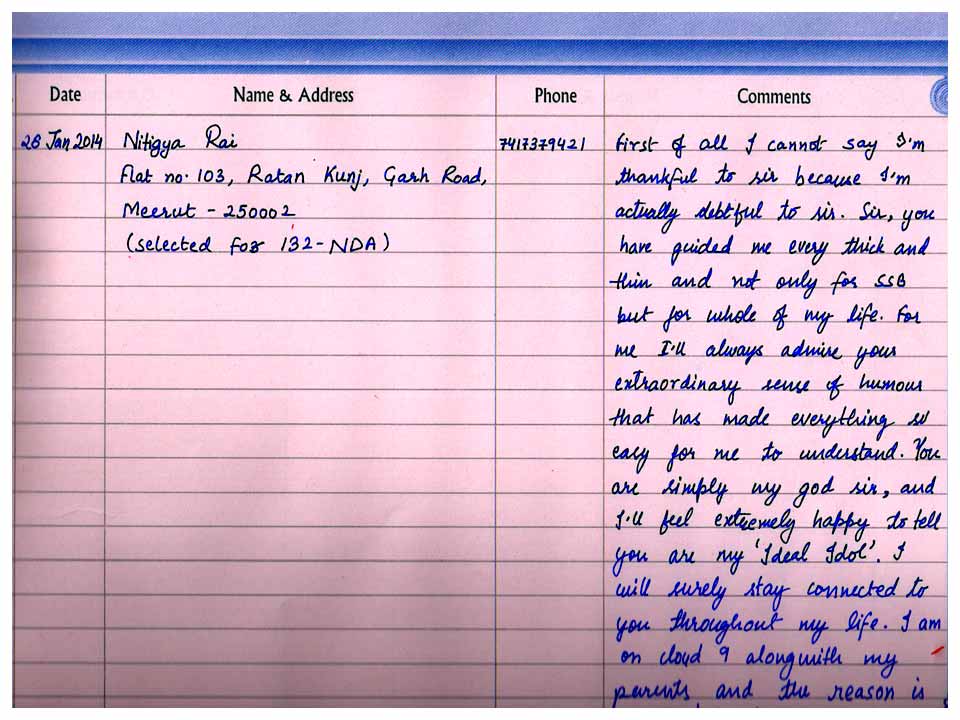 Date Name & Address Phone Comments
28 Jan 2014 Nitigya Rai 7417379421 First of all I cannot say I'm
Flat no. 103, Ratan Kunj, Garh Road, thankful to sir because I'm
Meerut - 250002 actually debtful to sir. Sir, you
(selected for 132-NDA) have guided me every thick and
thin and not only for SSB
but for whole of my life. For
me I'll always admire your
extraordinary sense of humour
that has made everything so
easy for me to understand. You
are simply my god sir, and
I'll feel extremely happy to tell
you are my 'Ideal Idol'. I
will surely stay connected to
you throughout my life. I am
on cloud 9 alongwith my
parents, and the reason is